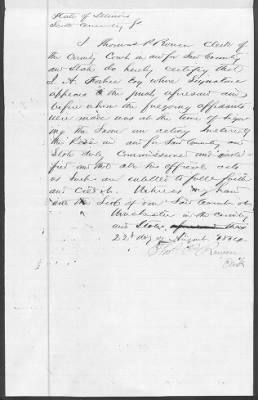 State of Illinois
Scott County ss
I Thomas P Rowen Clerk of
the County Court in and for said County
and State do hereby certify that
J. A. Forbes Esq whose signature
appears to the jurat aforesaid and
before whom the foregoing affidavits
were made was at the time of sign
ing the same an acting Justice of
the Peace in and for said County and
State duly Commissioned and quali
fied and that all his official acts
as such are entitled to full faith
and credit. Witness my hand
and the Seal of our said Court at
Winchester in the County
and State aforesaid this
22d day of August
Thos P Rowen
Clerk